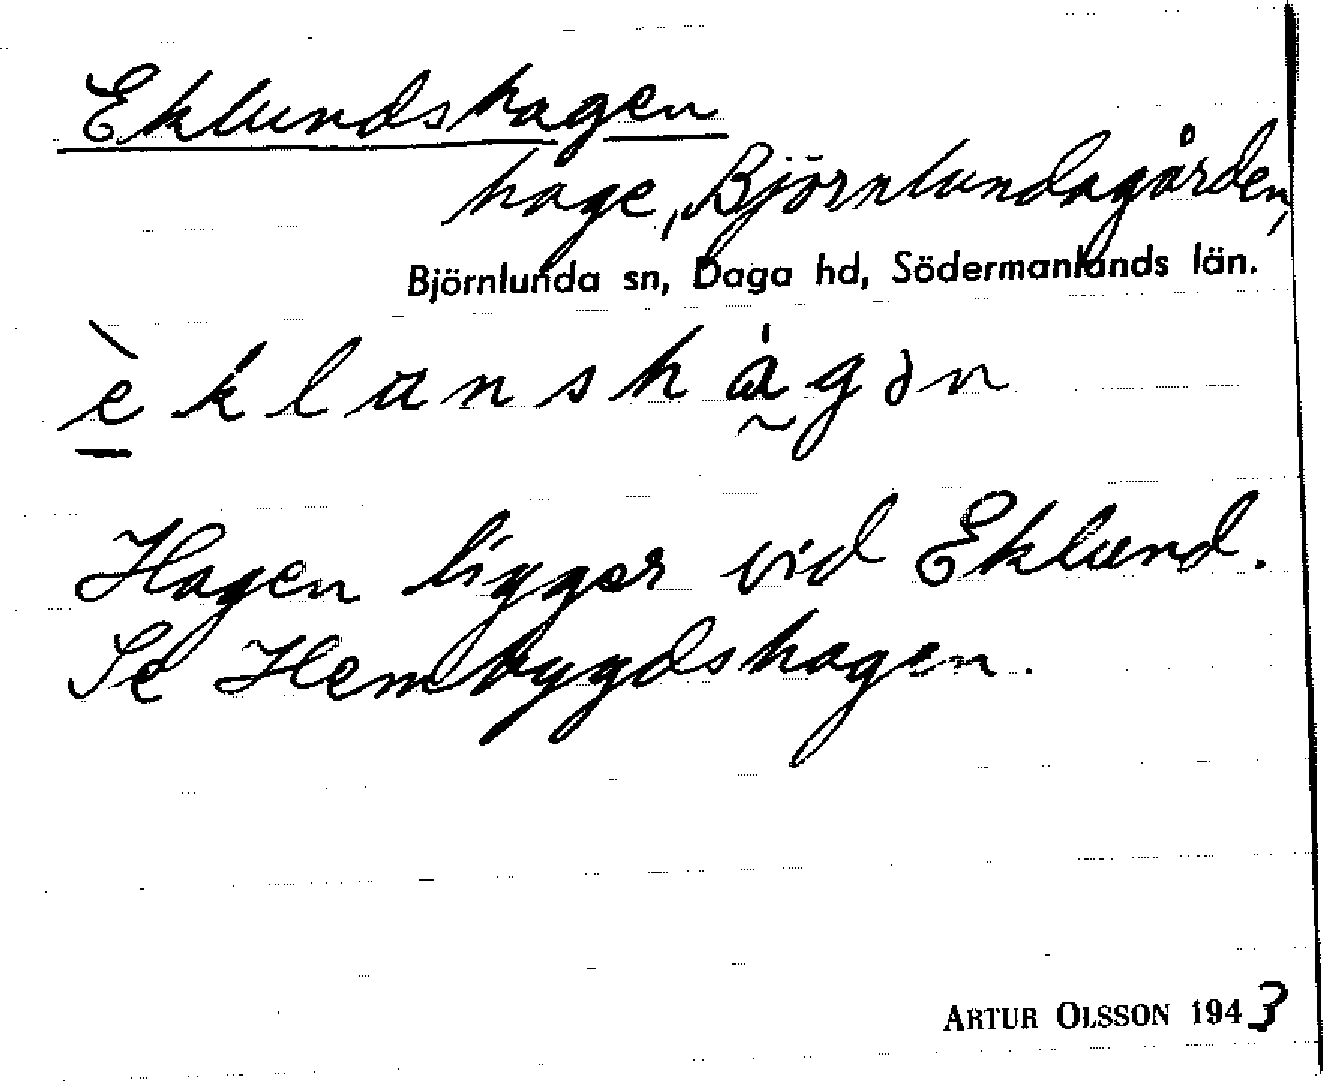 Eklundshagen
hage, Björnlundagården,
Björnlunda sn, Daga hd, Södermanlands län.
Hagen ligger vid Eklund.
Se Hembygdshagen.
ARTUR OLSSON 1943